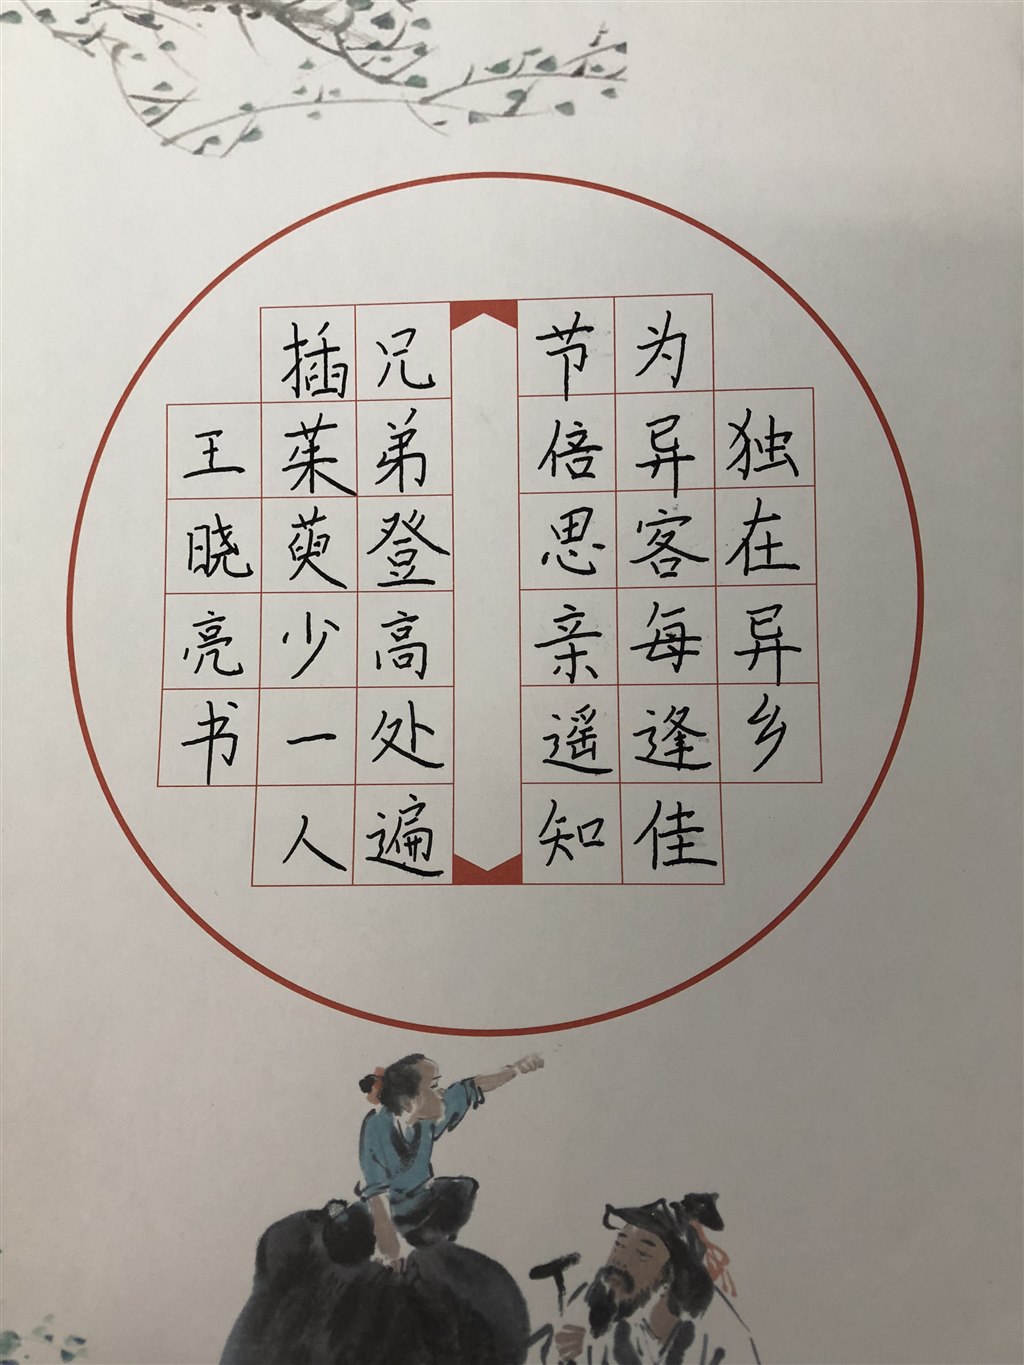 独在异乡
为异客每逢佳
节倍思亲遥知
兄弟登高处遍
插茱萸少一人
王晓亮书